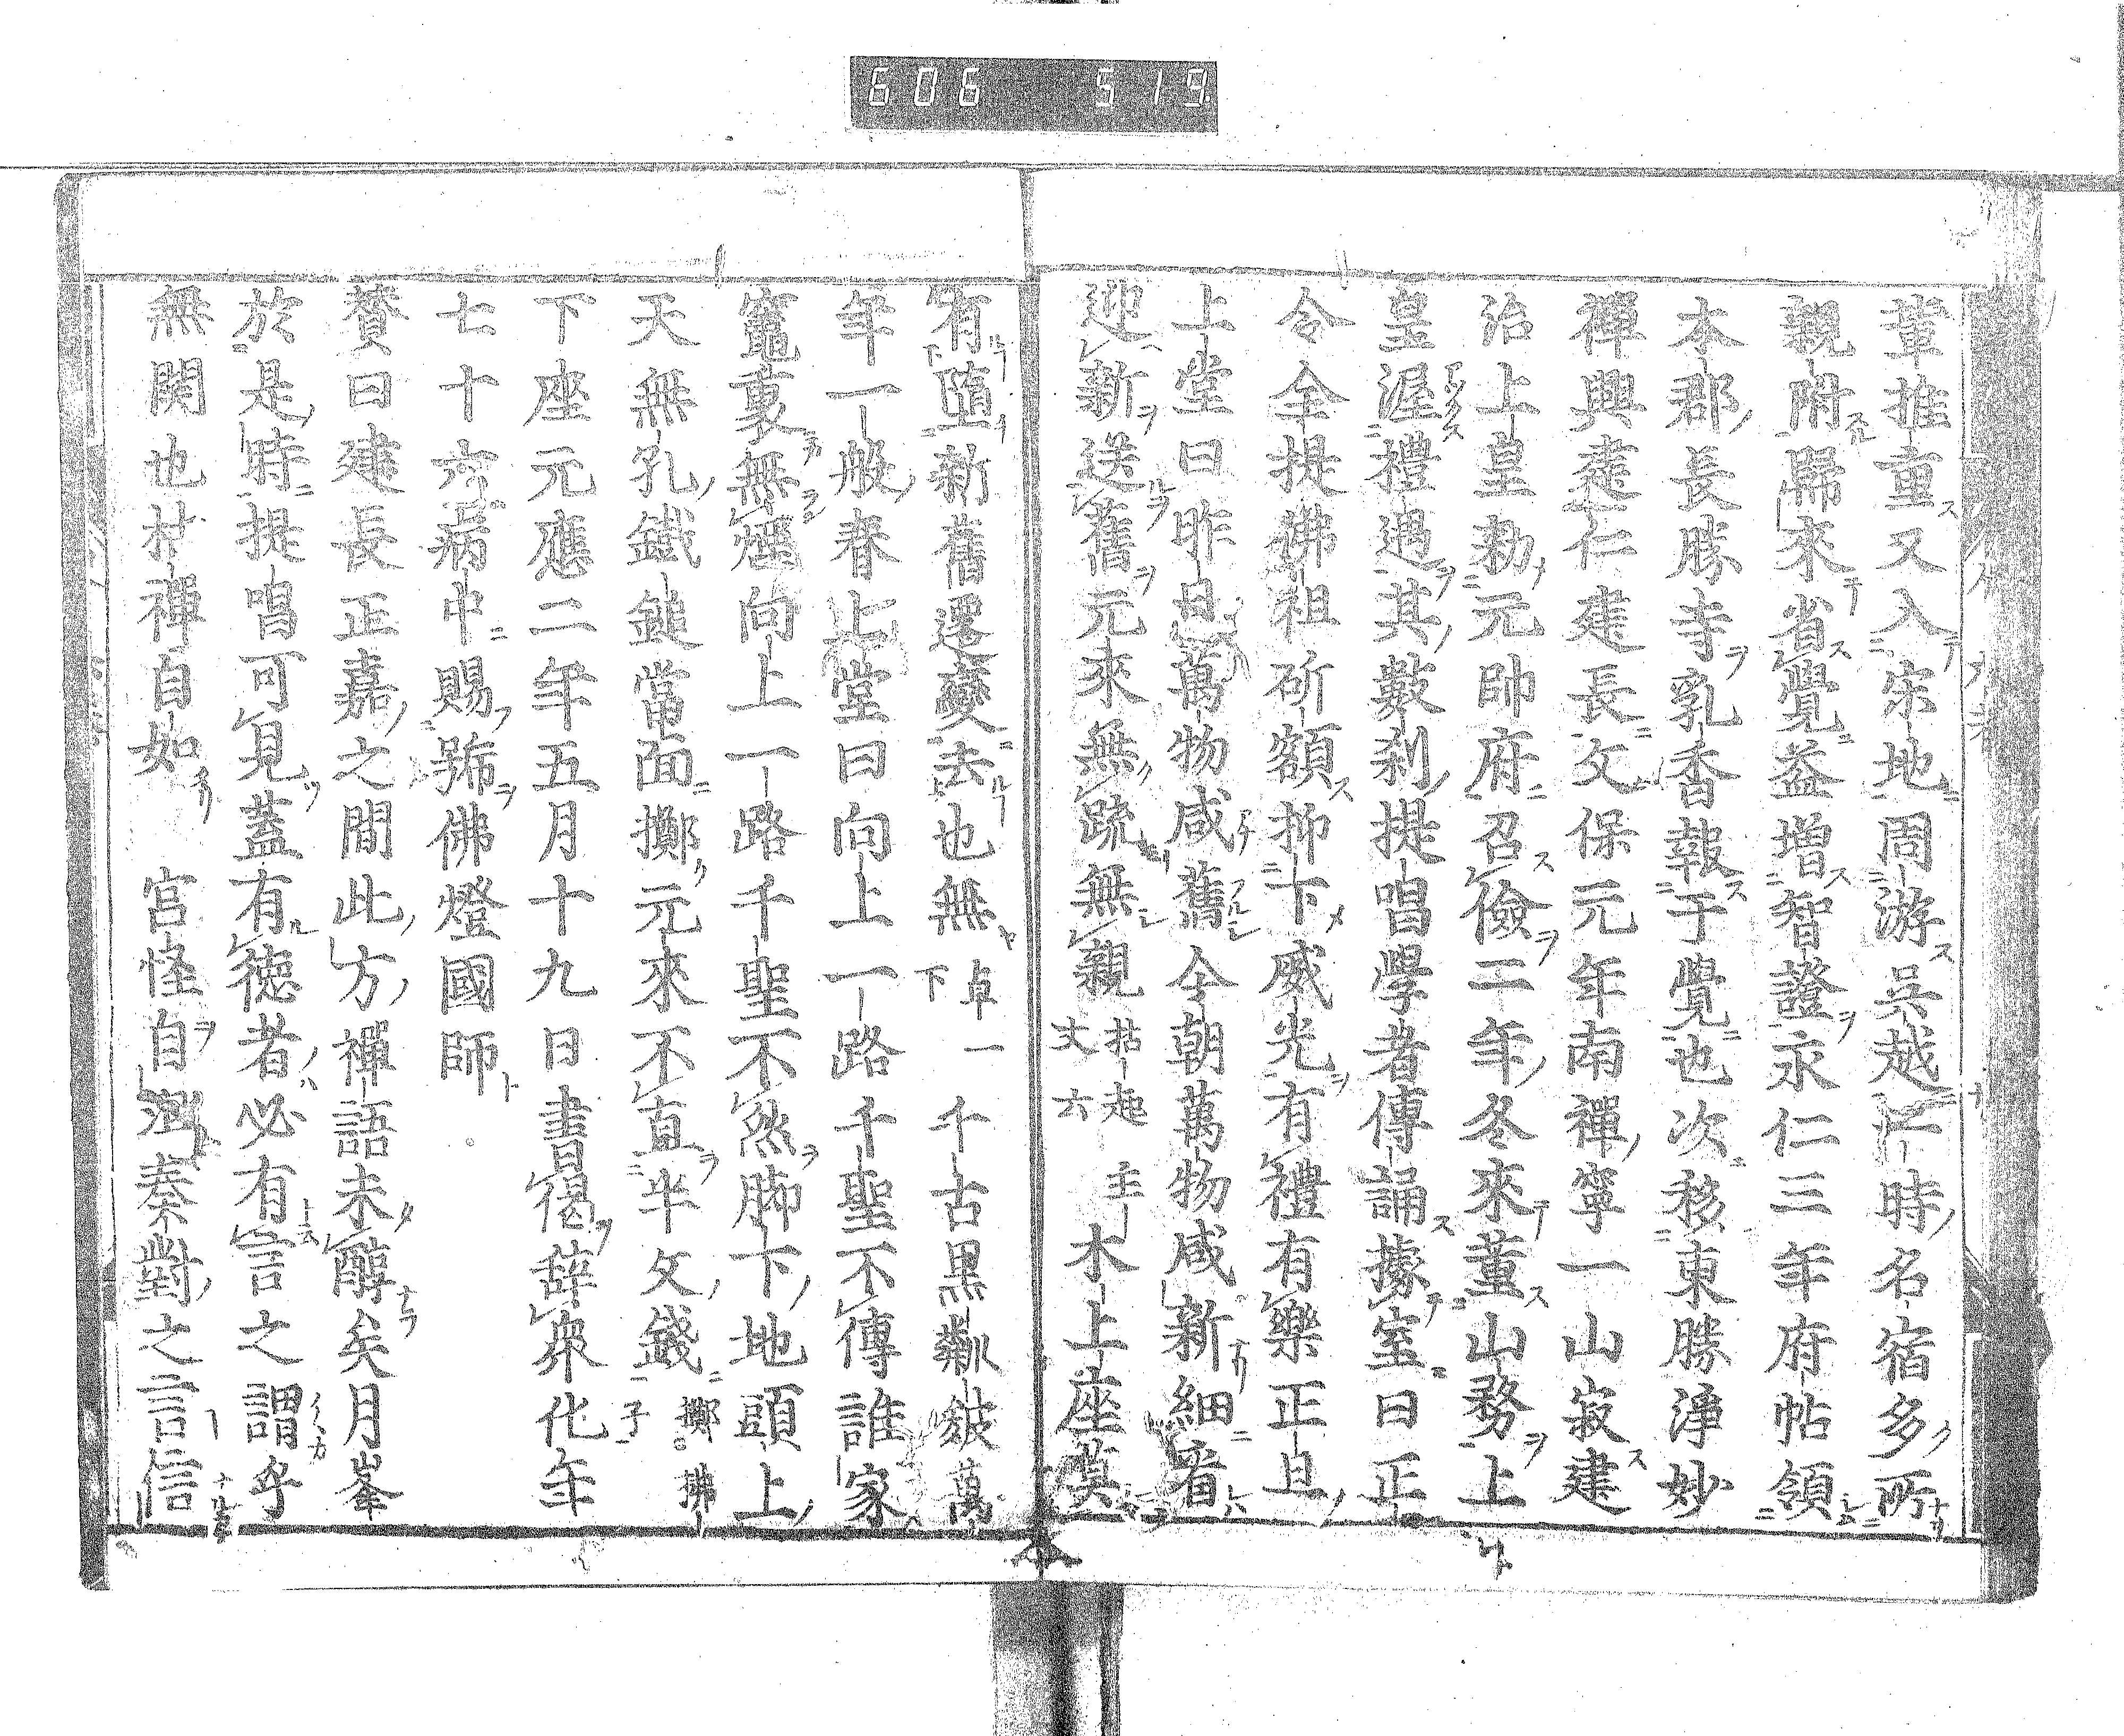 606 519
輩推重又入宋地周游吳越一時名宿多所
親附歸來省覺益增智證永仁三年府帖領
本郡長勝寺乳香報于覺也次移東勝淨妙
禪興建仁建長文保元年南禪寧一山寂建
治上皇勅元帥府召儉二年冬來董山務上
皇渥禮遇其數刹提唱學者傳誦據室曰正
令全提佛祖斫額抑下威光有禮有樂正旦
上堂曰昨日萬物咸舊今朝萬物咸新細看
迎新送舊元來無疏無親 拈起拄丈六 主 木上座莫
有墮新舊還變去也無 卓一下 千古黑皴皴萬
年一般春上堂曰向上一路千聖不傳誰家
竈裏無煙向上一路千聖不然脚下地頭上
天無孔鐵鎚當面擲元來不直半文錢 擲拂子
下座元應二年五月十九日書偈辭衆化年
七十六病中賜號佛燈國師
贊曰建長正嘉之間此方禪語未醇矣月峯
於是時提唱可見蓋有德者必有言之謂乎
無関也村禪自如 宮怪自 奏對之言信